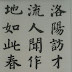 洛陽訪才
流人聞作
地如此春